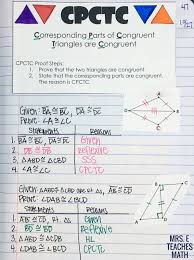 CPCTC
47
Corresponding Parts of Congruent
Triangles are Congruent
CPCTC Proof Steps:
1. Prove that the two triangles are congruent
2. State that the corresponding parts are congruent.
The reason is CPCTC
Given: BA ≅ BC, DA ≅ DC
Prove: ∠A ≅ ∠C
Statements Reasons
1. BA ≅ BC, DA ≅ DC Given
2. Reflexive
3. SSS
4. ∠A ≅ ∠C CPCTC
Prove: ∠DAB ≅ ∠BCD
Statements Reasons
1. Given
2. BD ≅ BD Reflexive
3. HL
4. ∠DAB ≅ ∠BCD CPCTC
MRS. E
TEACHES
MATH